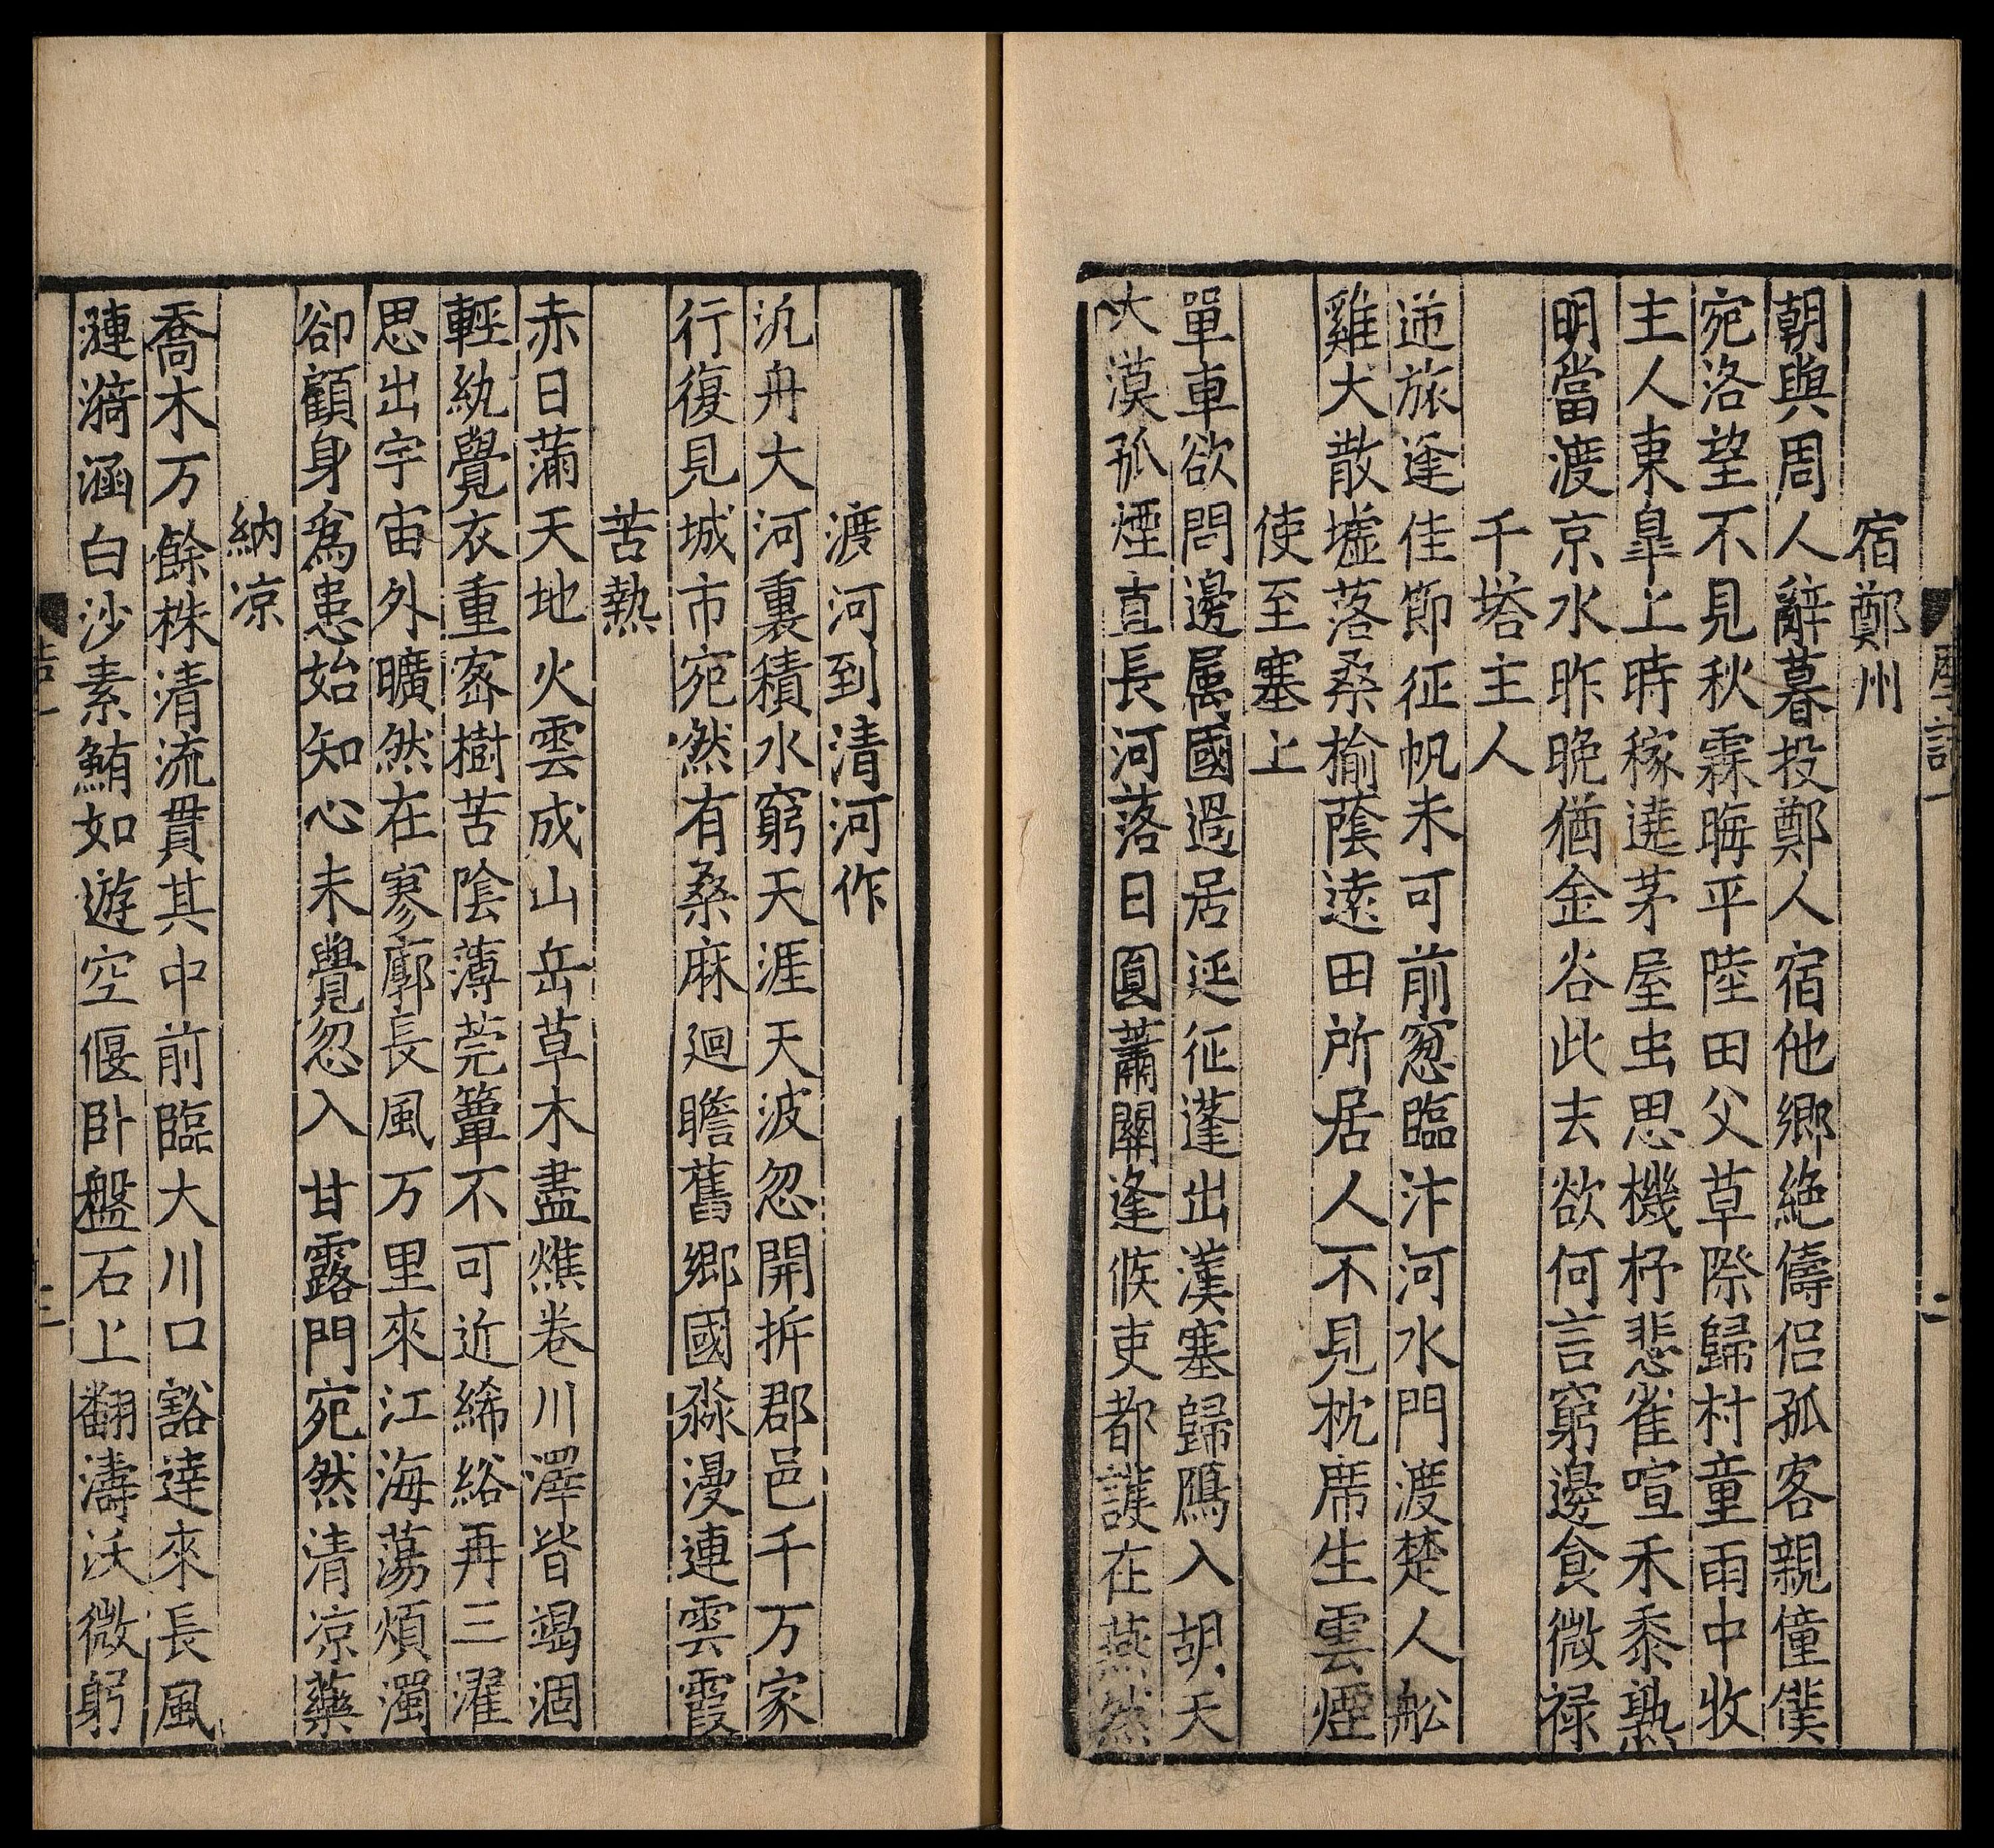 宿鄭州
朝與周人辭暮投鄭人宿他鄉絶儔侣孤客親僮僕
宛洛望不見秋霖晦平陸田父草際歸村童雨中牧
主人東皐上時稼遶茅屋虫思機杼悲雀喧禾黍熟
明當渡京水昨晚猶金谷此去欲何言窮邊食微禄
千塔主人
逆旅逢佳節征帆未可前窓臨汴河水門渡楚人舩
雞犬散墟落桑榆蔭逺田所居人不見枕席生雲煙
使至塞上
單車欲問邊屬國過居延征蓬出漢塞歸鴈入胡天
大漠孤煙直長河落日圓蕭關逢候吏都護在燕然
渡河到清河作
汎舟大河裏積水窮天涯天波忽開拆郡邑千万家
行復見城市宛然有桑麻廻瞻舊鄉國淼漫連雲霞
苦熱
赤日滿天地火雲成山岳草木盡燋卷川澤皆竭涸
輕紈覺衣重宻樹苦陰薄莞簟不可近絺綌再三濯
思出宇宙外曠然在寥廓長風万里來江海蕩煩濁
卻顧身爲患始知心未覺忽入甘露門宛然清凉藥
納凉
喬木万餘株清流貫其中前臨大川口豁達來長風
漣漪涵白沙素鮪如遊空偃卧盤石上翻濤沃微躬